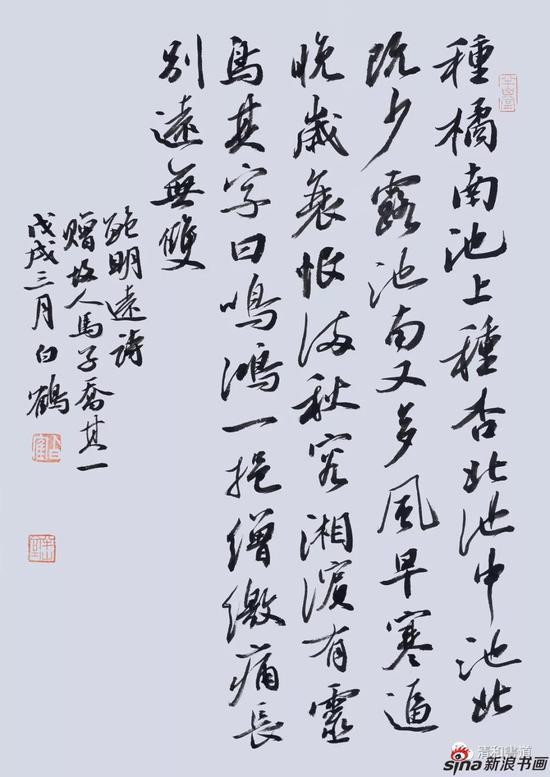 種橘南池上種杏北池中池北
既少露池南又多風早寒逼
晚歲衰恨滿秋容湘濱有靈
鳥其字曰鳴鴻一挹繒繳痛長
別遠無雙
鮑明遠詩
贈故人馬子喬其一
戊戌三月白鶴
清和書道
sina新浪书画